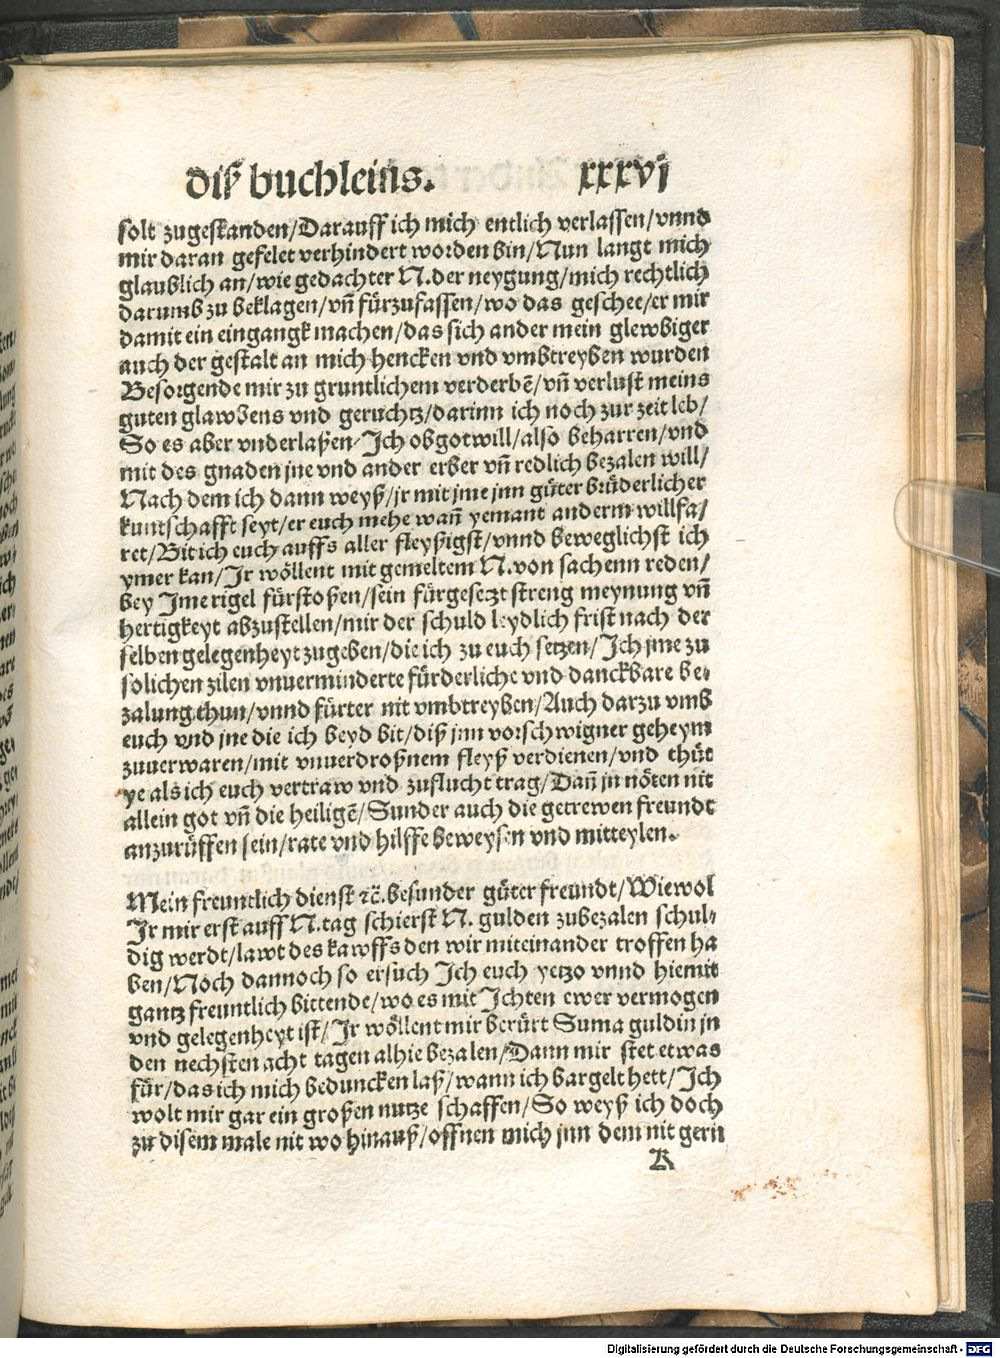 diß buchleins. xxxvj
solt zugestanden/Darauff ich mich entlich verlassen/vnnd
mir daran gefelet verhindert worden bin/Nun langt mich
glaublich an/wie gedachter N. der neygung/mich rechtlich
darumb zu beklagen/vñ fürzufassen/wo das geschee/er mir
damit ein eingangk machen/das sich ander mein glewbiger
auch der gestalt an mich hencken vnd vmbtreyben wurden
Besorgende mir zu gruntlichem verderbẽ/vñ verlust meins
guten glawbens vnd geruchtz/darinn ich noch zur zeit leb/
So es aber vnderlaßen/Ich obgotwill/also beharren/vnd
mit des gnaden jne vnd ander erber vñ redlich bezalen will/
Nach dem ich dann weyß/jr mit jme jnn gůter brůderlicher
kuntschafft seyt/er euch mehe wañ yemant anderm willfa/
ret/Bit ich euch auffs aller fleyßigst/vnnd beweglichst ich
ymer kan/Jr wöllent mit gemeltem N. von sachenn reden/
bey Jme rigel fürstoßen/sein fürgesetzt streng meynung vñ
hertigkeyt abzustellen/mir der schuld leydlich frist nach der
selben gelegenheyt zugeben/die ich zu euch setzen/Ich jme zu
solichen zilen vnuerminderte fürderliche vnd danckbare be/
zalung thun/vnnd fürter nit vmbtreyben/Auch darzu vmb
euch vnd jne die ich beyd bit/diß jnn vorschwigner geheym
zuuerwaren/mit vnuerdroßnem fleyß verdienen/vnd thüt
ye als ich euch vertraw vnd zuflucht trag/Dañ jn nöten nit
allein got vñ die heiligẽ/Sunder auch die getrewen freundt
anzurüffen sein/rate vnd hilffe beweysen vnd mitteylen.
Mein freuntlich dienst ⁊c̃. besunder gůter freundt/Wiewol
Jr mir erst auff N. tag schierst N. gulden zubezalen schul/
dig werdt/lawt des kawffs den wir miteinander troffen ha
ben/Noch dannoch so ersuch Ich euch yetzo vnnd hiemit
gantz freuntlich bittende/wo es mit Ichten ewer vermogen
vnd gelegenheyt ist/Jr wöllent mir berürt Suma guldin jn
den nechsten acht tagen alhie bezalen/Dann mir stet etwas
für/das ich mich beduncken laß/wann ich bargelt hett/Ich
wolt mir gar ein großen nutze schaffen/So weyß ich doch
zu disem male nit wo hinauß/offnen mich jnn dem nit gern
K
Digitalisierung gefördert durch die Deutsche Forschungsgemeinschaft - DFG